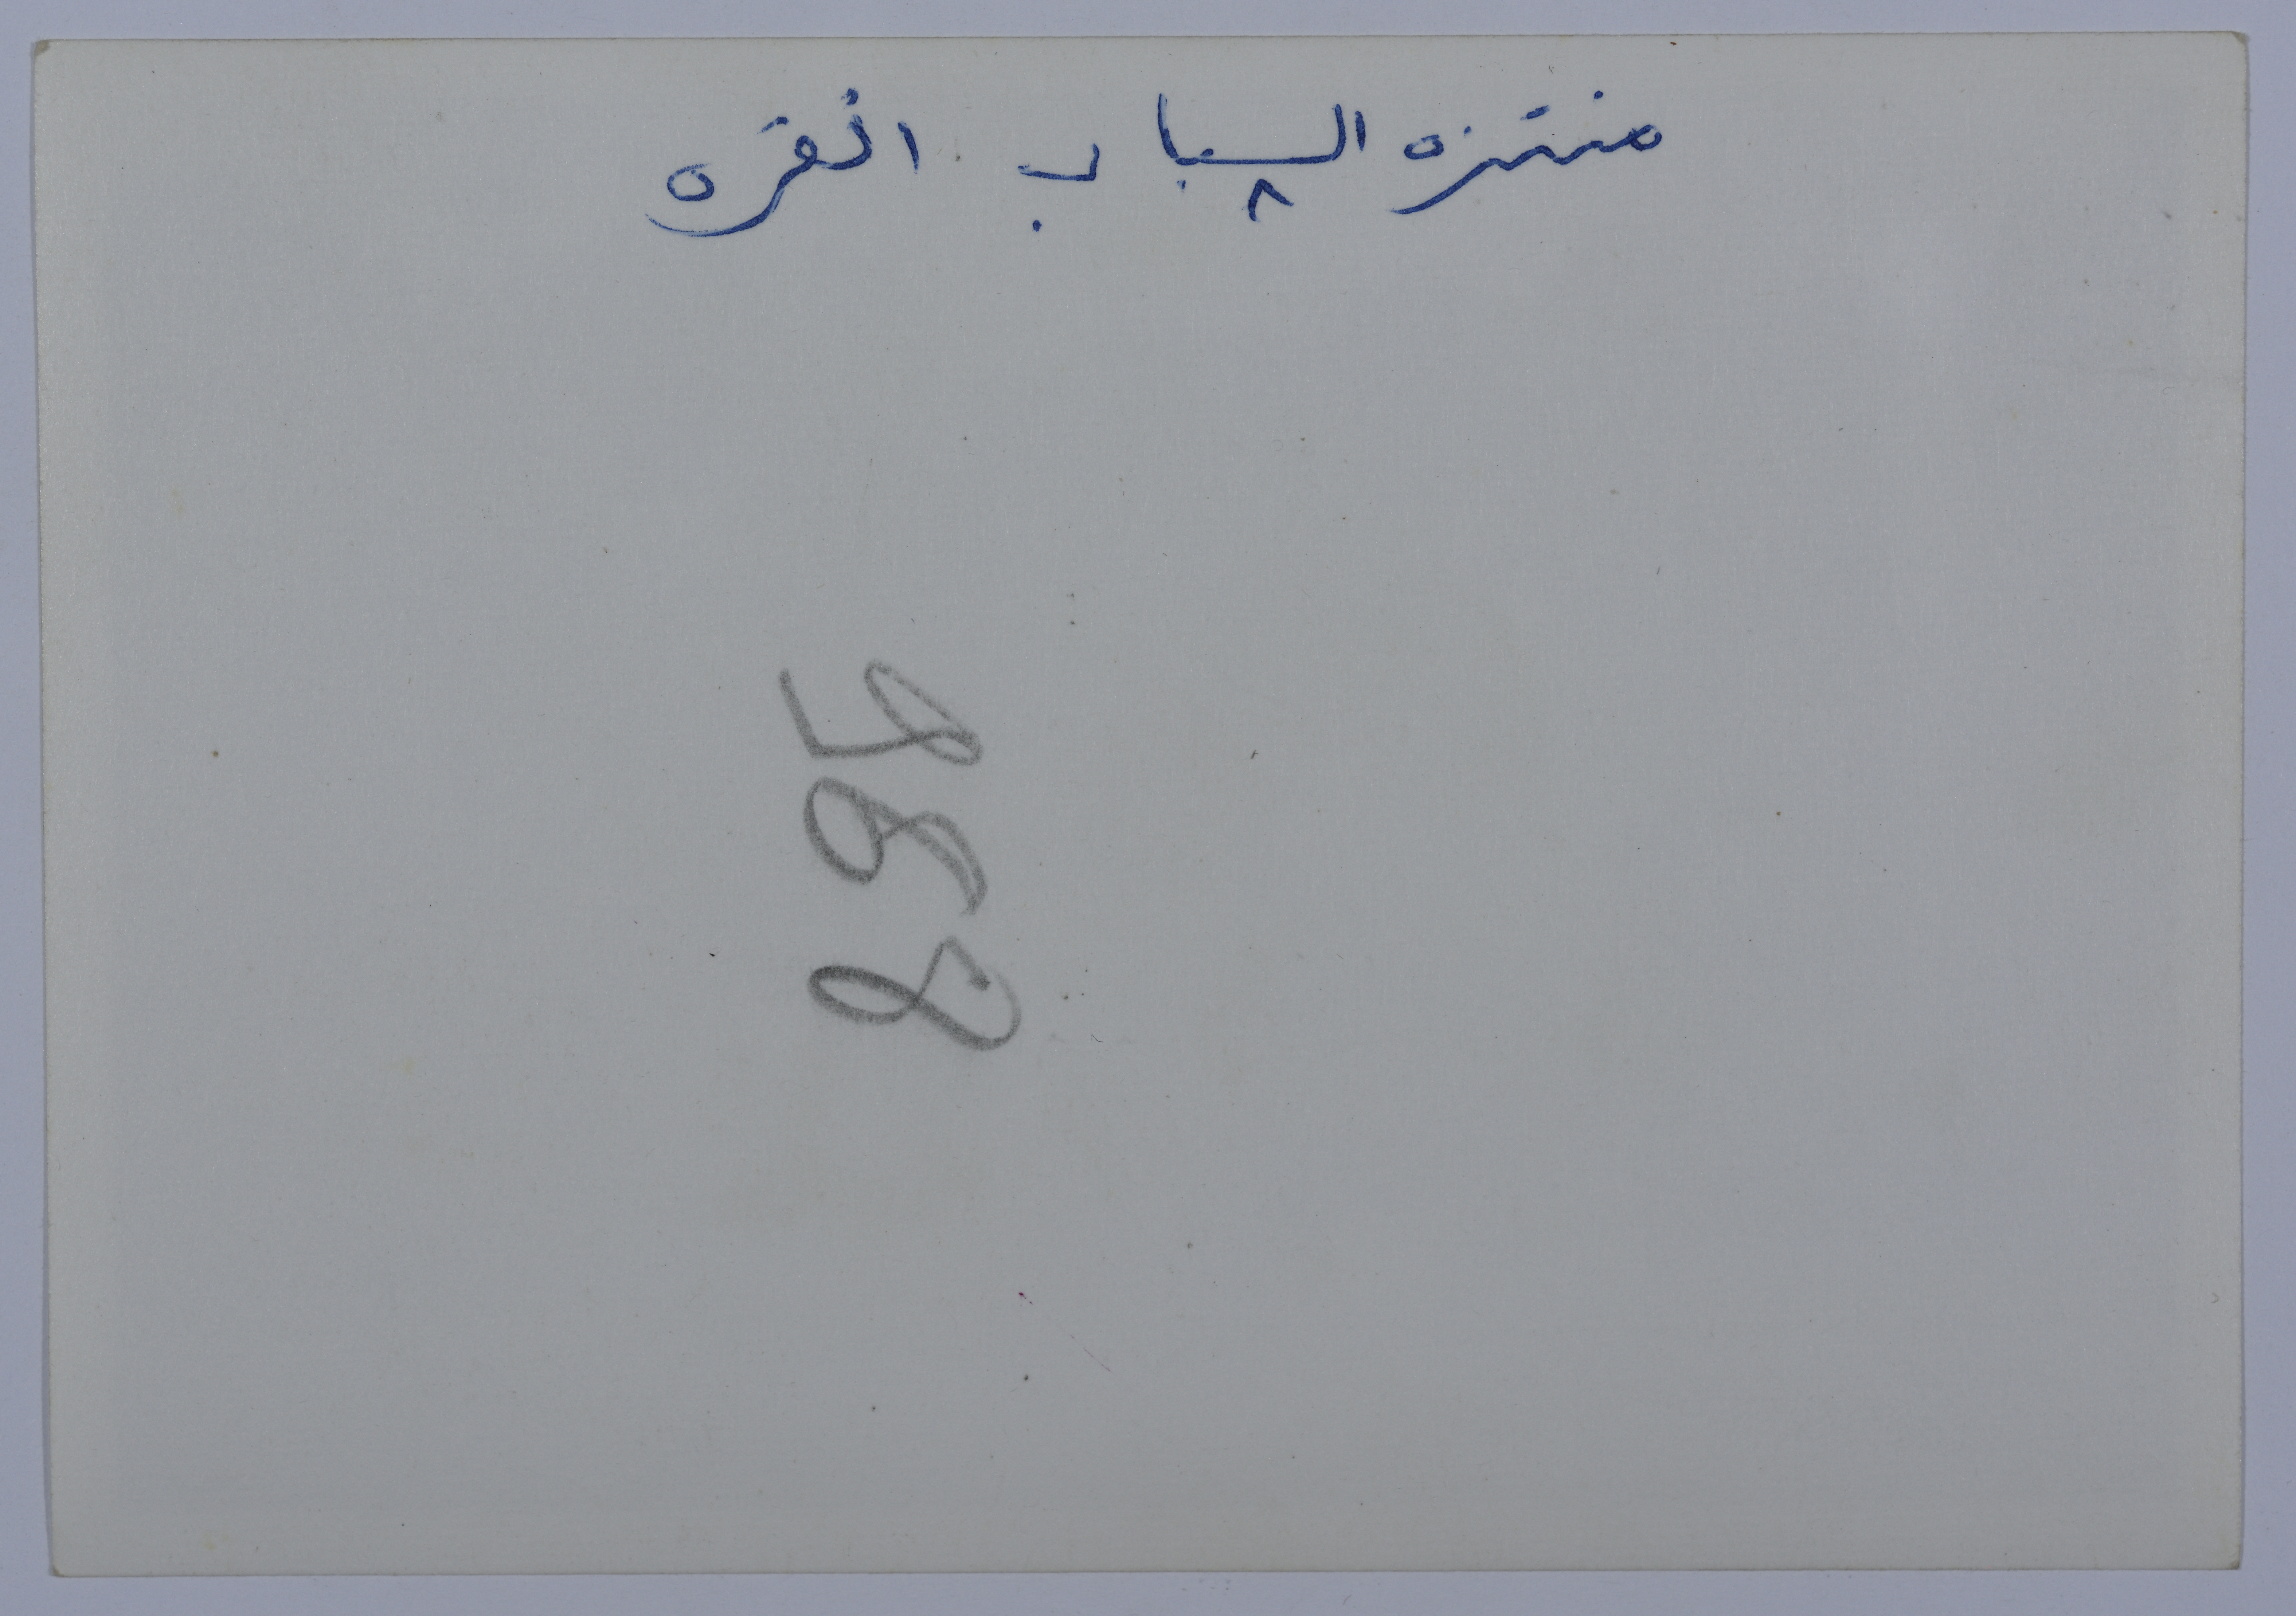 منتزه الشباب انقره
968